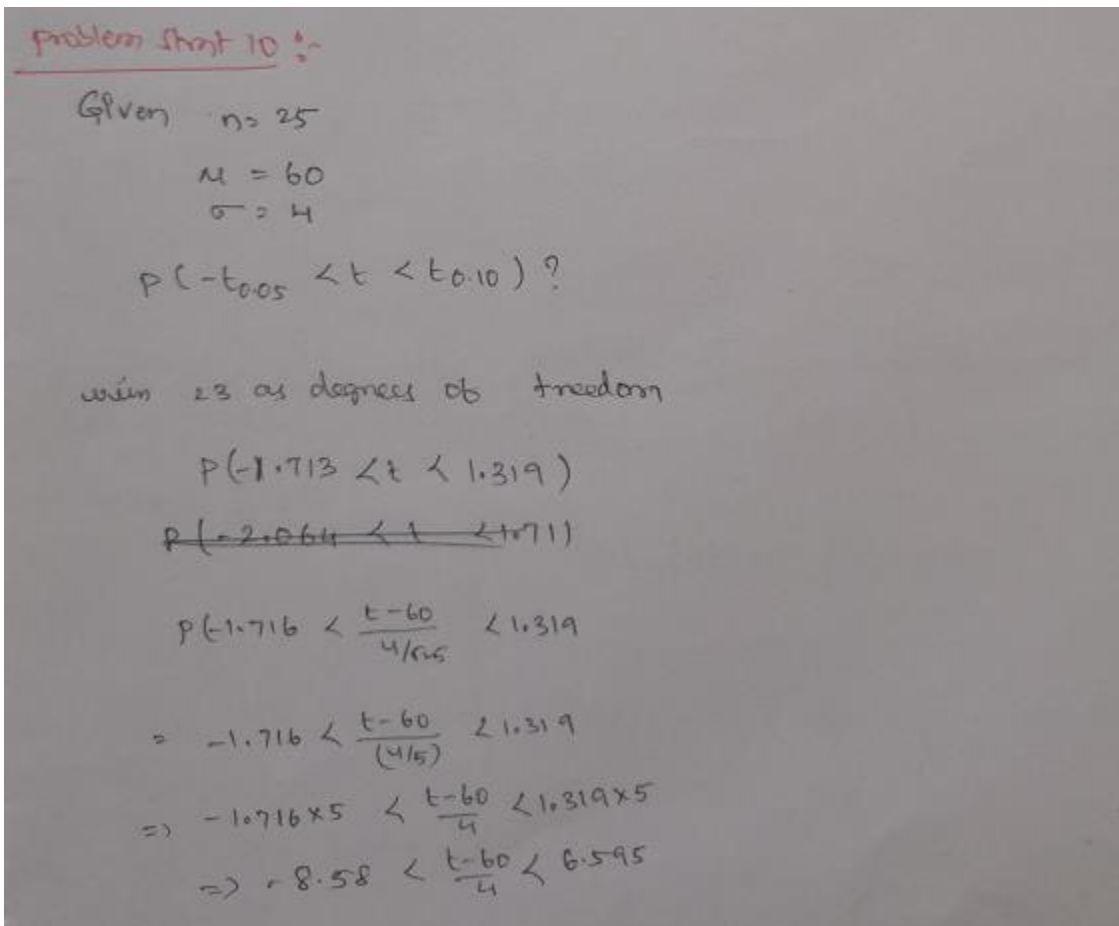 problem 10 :-
Given n = 25
μ = 60
σ = 4
P(-t0.05 < t < t0.10) ?
23 as degrees of freedom
P(-1.713 < t < 1.319)
P(-2.064 < t < 1.71)
P(-1.716 < (t-60)/(4/√25) < 1.319
= -1.716 < (t-60)/(4/5) < 1.319
=> -1.716×5 < (t-60)/4 < 1.319×5
=> -8.58 < (t-60)/4 < 6.595